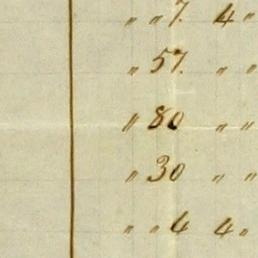 " " 7. 4 "
" 57. " "
" 80 " "
" 30 " "
" " 4 4 "